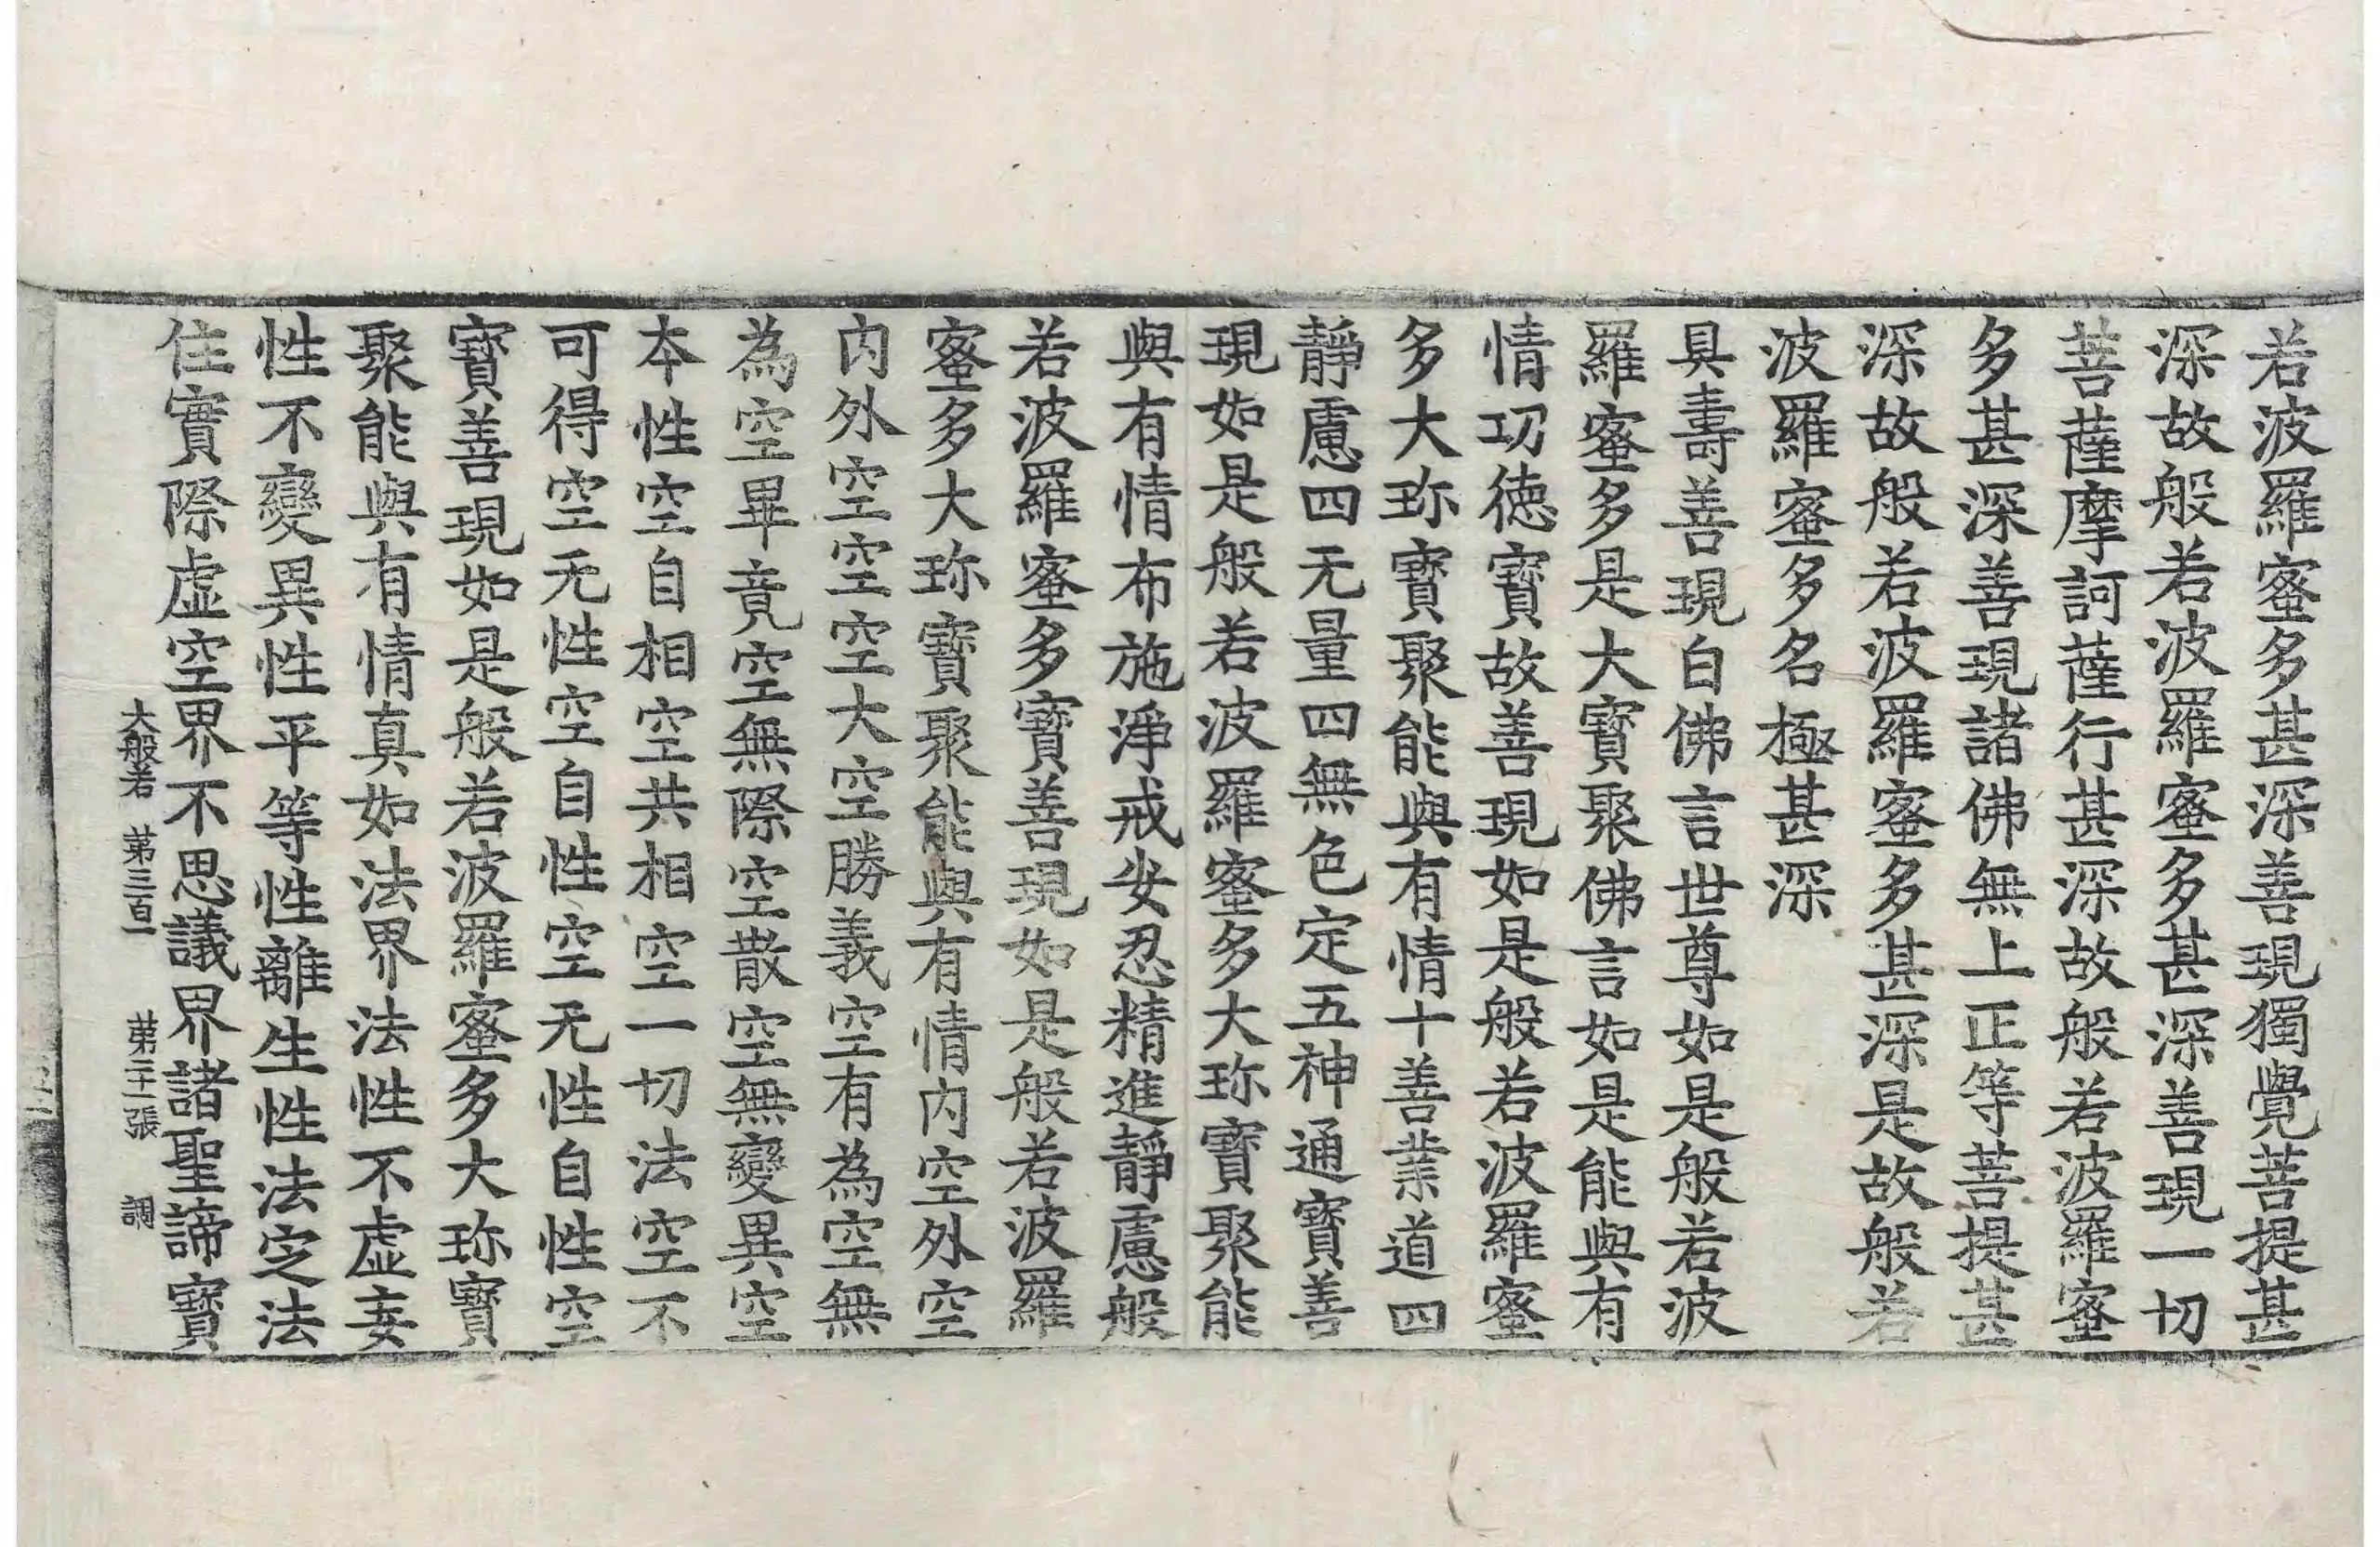 若波羅蜜多甚深善現獨覺菩提甚
深故般若波羅蜜多甚深善現一切
菩薩摩訶薩行甚深故般若波羅蜜
多甚深善現諸佛無上正等菩提甚
深故般若波羅蜜多甚深是故般若
波羅蜜多名極甚深
具壽善現白佛言世尊如是般若波
羅蜜多是大寶聚佛言如是能與有
情㓛德寶故善現如是般若波羅蜜
多大珎寶聚能與有情十善業道四
靜慮四无量四無色定五神通寶善
現如是般若波羅蜜多大珎寶聚能
與有情布施淨戒安忍精進靜慮般
若波羅蜜多寶善現如是般若波羅
蜜多大珎寶聚能與有情內空外空
內外空空空大空勝義空有為空無
為空畢竟空無際空散空無變異空
本性空自相空共相空一切法空不
可得空无性空自性空无性自性空
寶善現如是般若波羅蜜多大珎寶
聚能與有情真如法界法性不虛妄
性不變異性平等性離生性法定法
住實際虛空界不思議界諸聖諦寶
大般若 苐三百一 苐二十一張 調